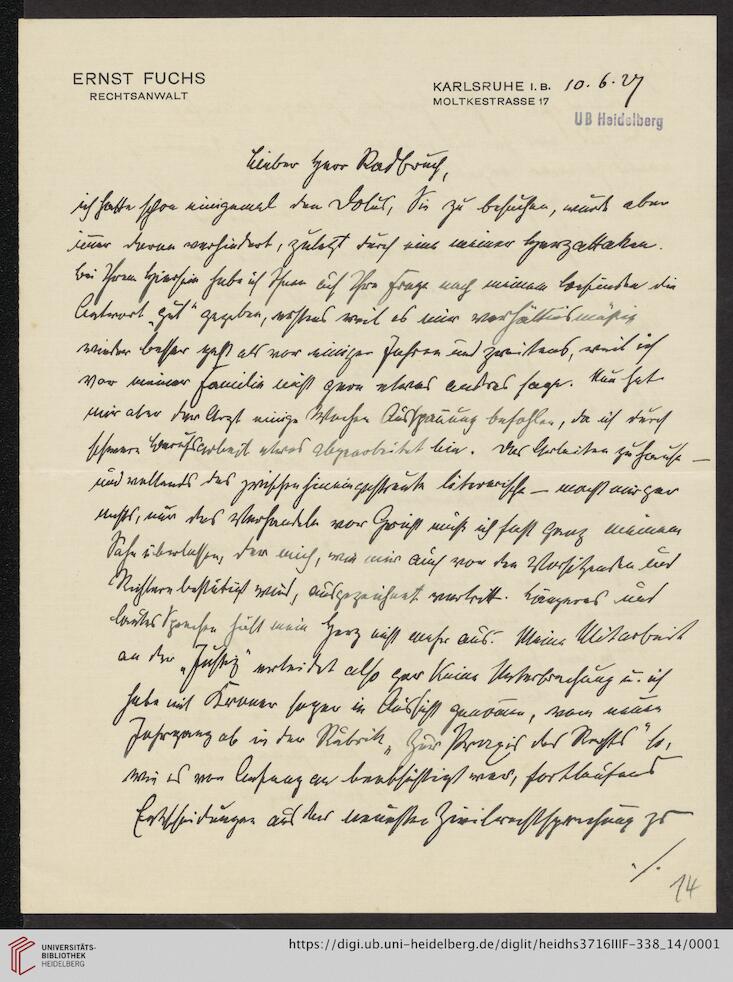 ERNST FUCHS
RECHTSANWALT
KARLSRUHE I. B. 10.6.27
MOLTKESTRASSE 17
UB Heidelberg
Lieber Herr Radbruch,
ich hatte schon einigemal den Dolus, Sie zu besuchen, wurde aber
immer daran verhindert, zuletzt durch eine meiner Herzattaken.
Bei Ihrem Hiersein habe ich Ihnen auf Ihre Frage nach meinem Befinden die
Antwort „gut" gegeben, erstens weil es mir verhältnismäßig
wieder besser geht als vor einigen Jahren und zweitens, weil ich
vor meiner Familie nicht gern etwas andres sage. Nun hat
mir aber der Arzt einige Wochen Ausspannung befohlen, da ich durch
schwere Berufsarbeit etwas abgearbeitet bin. Das Arbeiten zu Hause —
und vollends das zwischenhineingestreute literarische — macht mir gar
nichts, nur das Verhandeln vor Gericht muß ich fast ganz meinem
Sohn überlassen, der mich, wie mir auch von den Vorsitzenden und
Richtern bestätigt wird, ausgezeichnet vertritt. Längeres und
lautes Sprechen hält mein Herz nicht mehr aus. Meine Mitarbeit
an der „Justiz" erleidet also gar keine Unterbrechung u. ich
habe mit Kroner sogar in Aussicht genommen, vom neuen
Jahrgang ab in der Rubrik „Zur Praxis des Rechts" so,
wie es von Anfang an beabsichtigt war, fortlaufend
Entscheidungen aus der neuesten Zivilrechtsprechung zu
./.
14
UNIVERSITÄTS-
BIBLIOTHEK
HEIDELBERG
https://digi.ub.uni-heidelberg.de/diglit/heidhs3716IIIF-338_14/0001